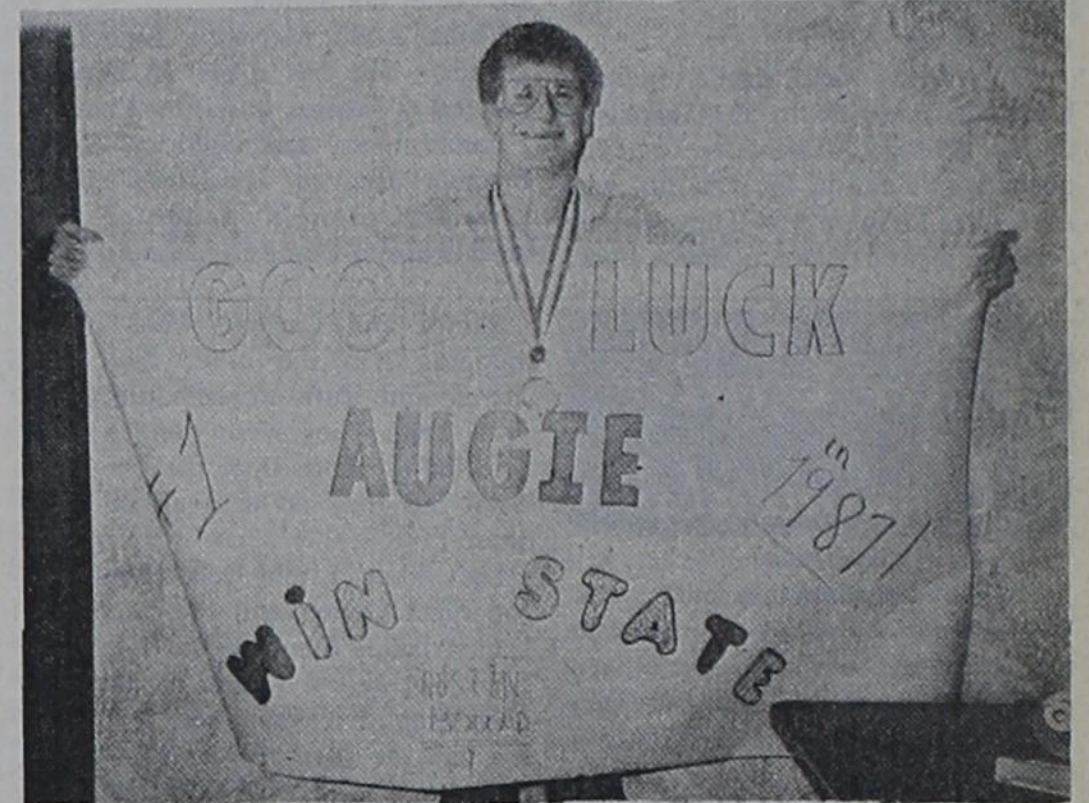 GOOD LUCK
#1
AUGIE
"1987"
WIN STATE